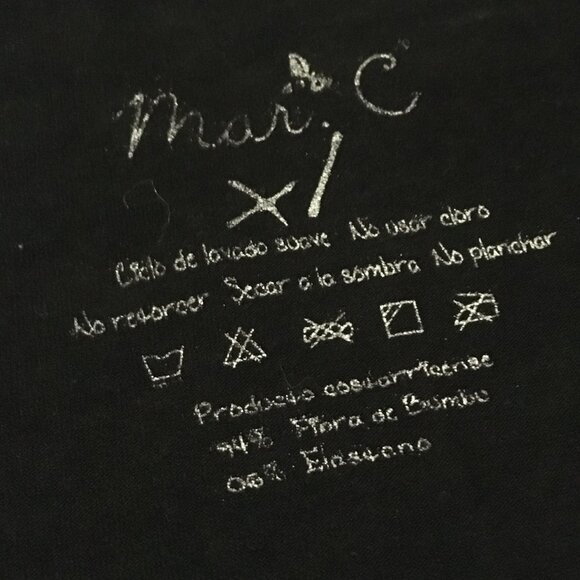 Mar. C
xl
Ciclo de lavado suave No usar cloro
No retorcer Secar a la sombra No planchar
Producto costarricense
94% Fibra de Bambu
06% Elastano